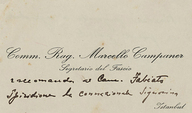 Comm. Rag. Marcello Campaner
Segretario del Fascio
raccomanda al Cam. Fabiato
Spiridione la connazionale Signorina
Istanbul